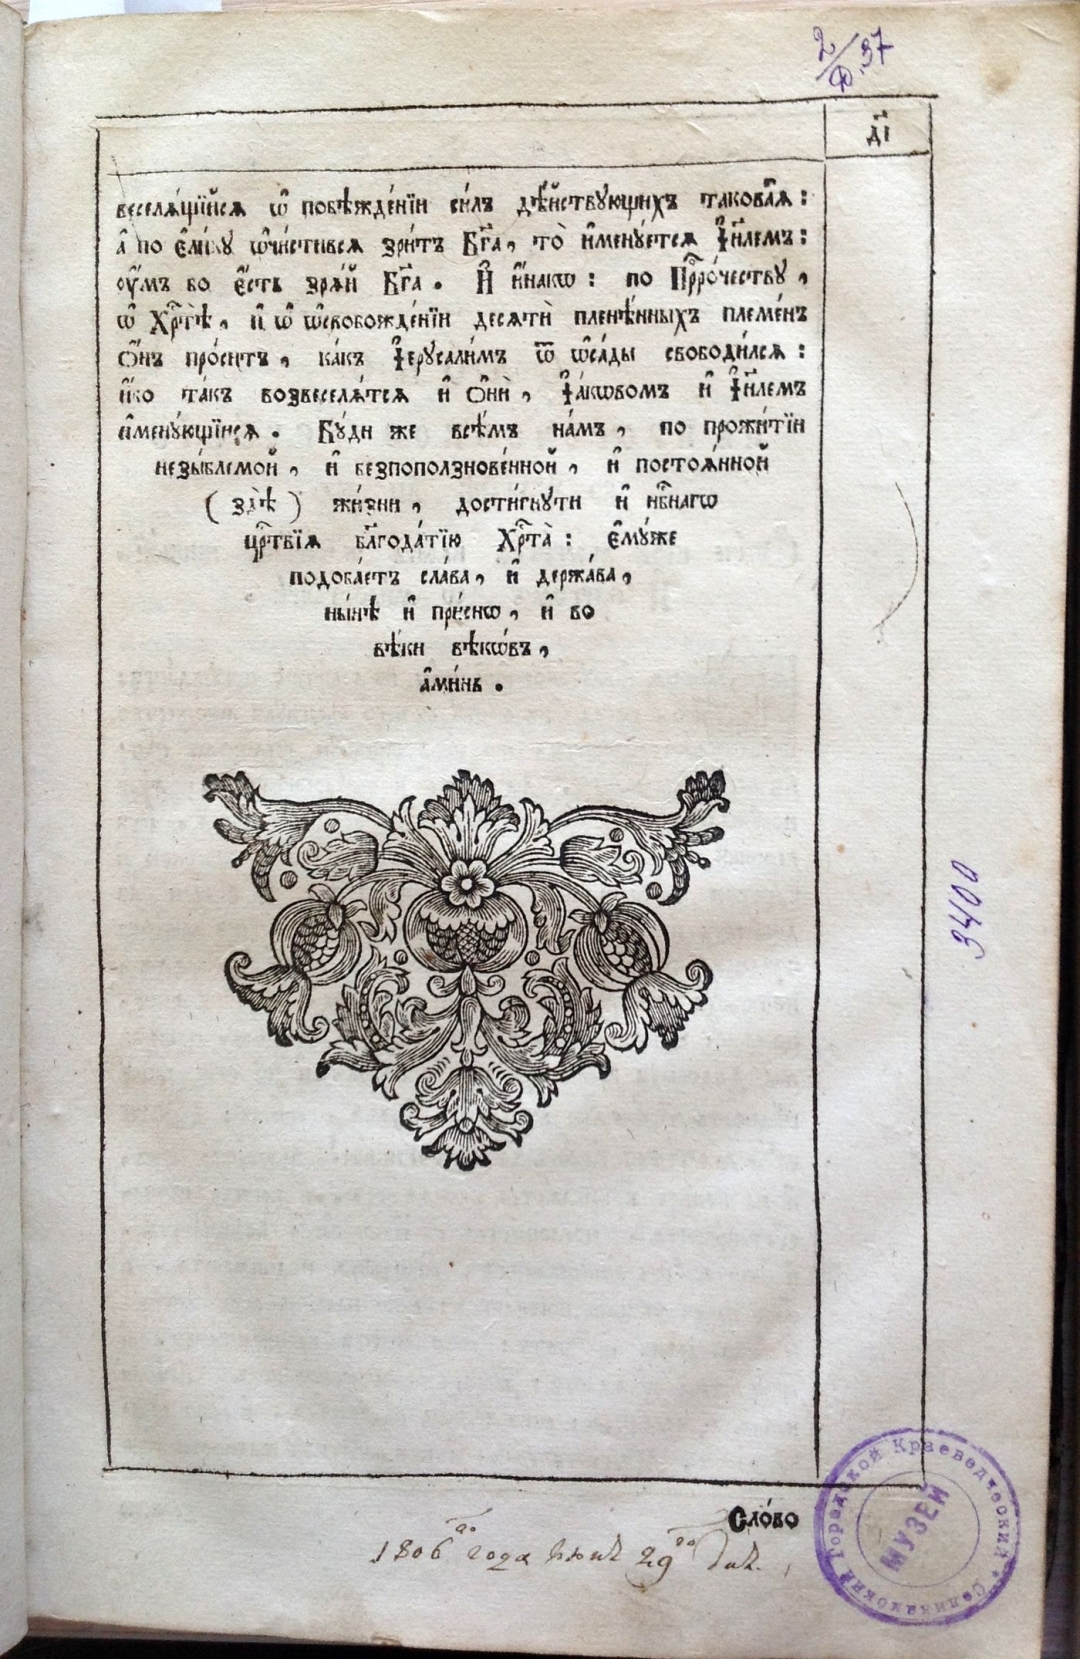 2/Ф.37
д҃і
веселѧ́щїйсѧ ѡ҆ побѣжде́нїи си́лъ дѣ́йствующихъ такова̑ѧ :
а҆ по є҆ли́ку ѡ҆чи́стивсѧ зри́тъ Бг҃а , то̀ и҆мену́етсѧ І҆и҃лемъ :
оу҆́мъ бо є҆́сть зрѧ́й Бг҃а . И҆ и҆́накѡ : по Прⷪ҇ро́честву ,
ѡ҆ Хрⷭ҇тѣ̀ , и҆ ѡ҆ ѡ҆свобожде́нїи десѧтѝ плене́нныхъ племе́нъ
Ѻ҆́нъ про́ситъ , ка́къ І҆ерусали́мъ ѿ ѡ҆са́ды свободи́лсѧ :
ꙗ҆́ко та́къ возвеселѧ́тсѧ и҆ ѻ҆нѝ , І҆а́кѡвомъ и҆ І҆и҃лемъ
и҆мену́ющїисѧ . Бу́ди же всѣ́мъ на́мъ , по прожи́тїи
незы́блемой , и҆ безпоползнове́нной , и҆ постоѧ́нной
( здѣ̀ ) жи́зни , дости́гнути и҆ нбⷭ҇нагѡ
црⷭ҇твїѧ блгⷣода́тїю Хрⷭ҇та̀ : є҆му́же
подоба́етъ сла́ва , и҆ держа́ва ,
ны́нѣ и҆ при́снѡ , и҆ во
вѣ́ки вѣкѡ́въ ,
а҆ми́нь .
3400
Сло́во
1806го года июнѧ 29го днѧ.
Соликамский Городской Краеведческий
МУЗЕЙ